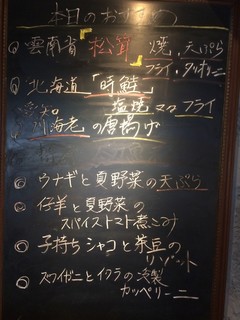 本日のおすすめ
◎ 雲南省「松茸」焼、天ぷら
フライ、タリオリーニ
◎ 北海道「時鮭」
塩焼 or フライ
愛知 川海老の唐揚げ
◎ ウナギと夏野菜の天ぷら
◎ 仔羊と夏野菜の
スパイストマト煮こみ
◎ 子持ちシャコと茶豆の
リゾット
◎ ズワイガニとイクラの冷製
カッペリーニ